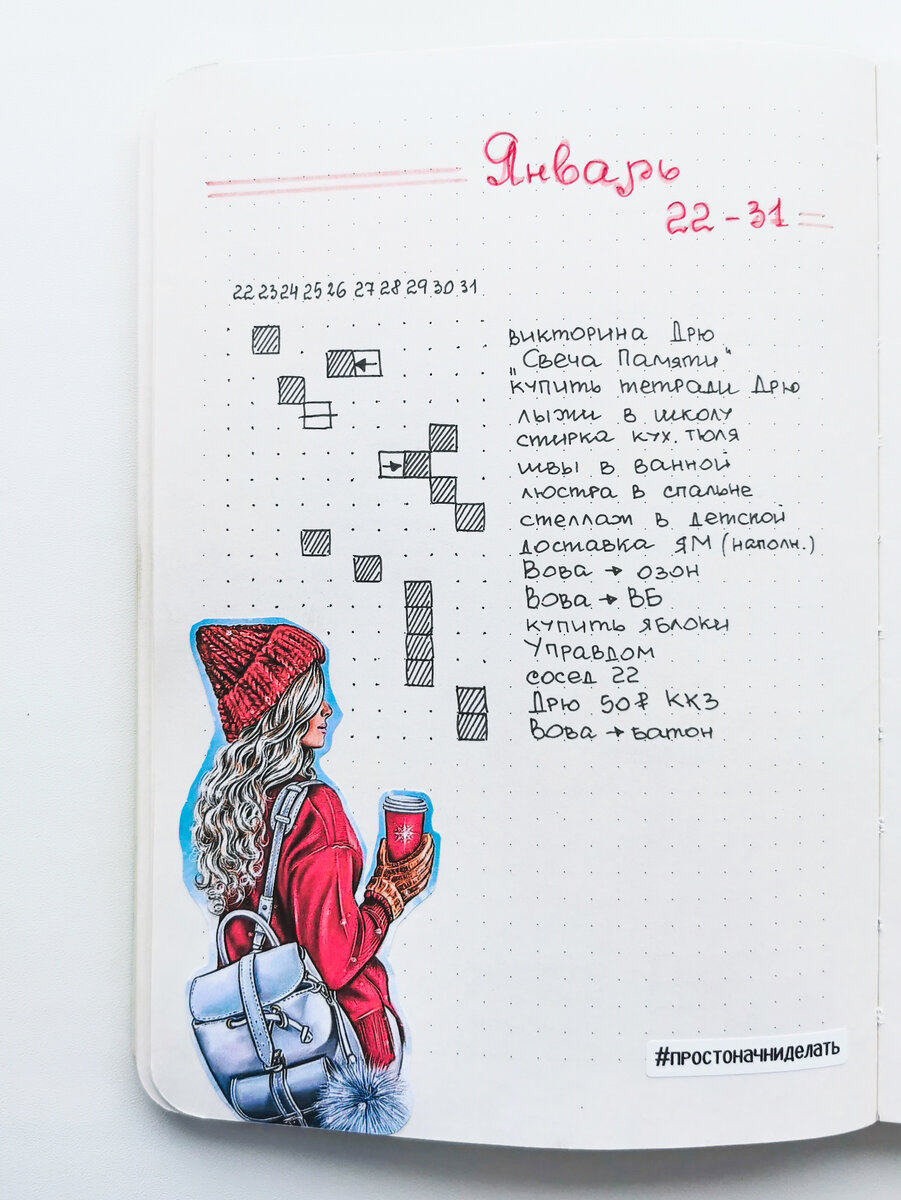 Январь
22 - 31
22 23 24 25 26 27 28 29 30 31
викторина Дрю
"Свеча Памяти"
купить тетради Дрю
лыжи в школу
стирка кух. тюля
швы в ванной
люстра в спальне
стеллаж в детской
доставка ЯМ (наполн.)
Вова → озон
Вова → ВБ
купить яблоки
Управдом
сосед 22
Дрю 50₽ ККЗ
Вова → батон
#простоначниделать